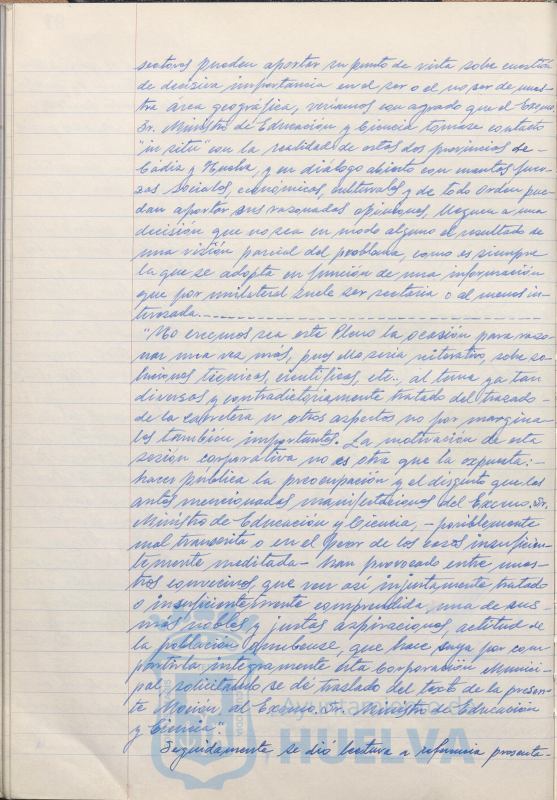 sectores pueden aportar su punto de vista sobre cuestión
de decisiva importancia en el ser o el no ser de nues-
tra área geográfica, veríamos con agrado que el Excmo.
Sr. Ministro de Educación y Ciencia tomase contacto
"in situ" con la realidad de estas dos provincias de
Cádiz y Huelva, y en diálogo abierto con cuantas fuer-
zas sociales, económicas, culturales y de todo orden pue-
dan aportar sus razonadas opiniones, lleguen a una
decisión que no sea en modo alguno el resultado de
una visión parcial del problema, como es siempre
la que se adopta en función de una información
que por unilateral suele ser sectaria o al menos in-
teresada.------------
"No creemos sea este Pleno la ocasión para razo-
nar una vez más, pues ello sería reiterativo, sobre so-
luciones técnicas, científicas, etc., al tema ya tan
diversa y contradictoriamente tratado del trazado
de la carretera u otros aspectos no por margina-
les también importantes. La motivación de esta
sesión corporativa no es otra que la expuesta:-
hacer pública la preocupación y el disgusto que las
antes mencionadas manifestaciones del Excmo. Sr.
Ministro de Educación y Ciencia, - posiblemente
mal transcrita o en el peor de los casos insuficien-
temente meditada - han provocado entre nues-
tros convecinos, que ven así injustamente tratada
o insuficientemente comprendida una de sus
más nobles y justas aspiraciones, actitud de
la población onubense, que hace suya por com-
partirla íntegramente esta Corporación Munici-
pal, solicitando se dé traslado del texto de la presen-
te Moción, al Excmo. Sr. Ministro de Educación
y Ciencia".
Seguidamente se dió lectura a referencia presenta-
Ayuntamiento de
HUELVA